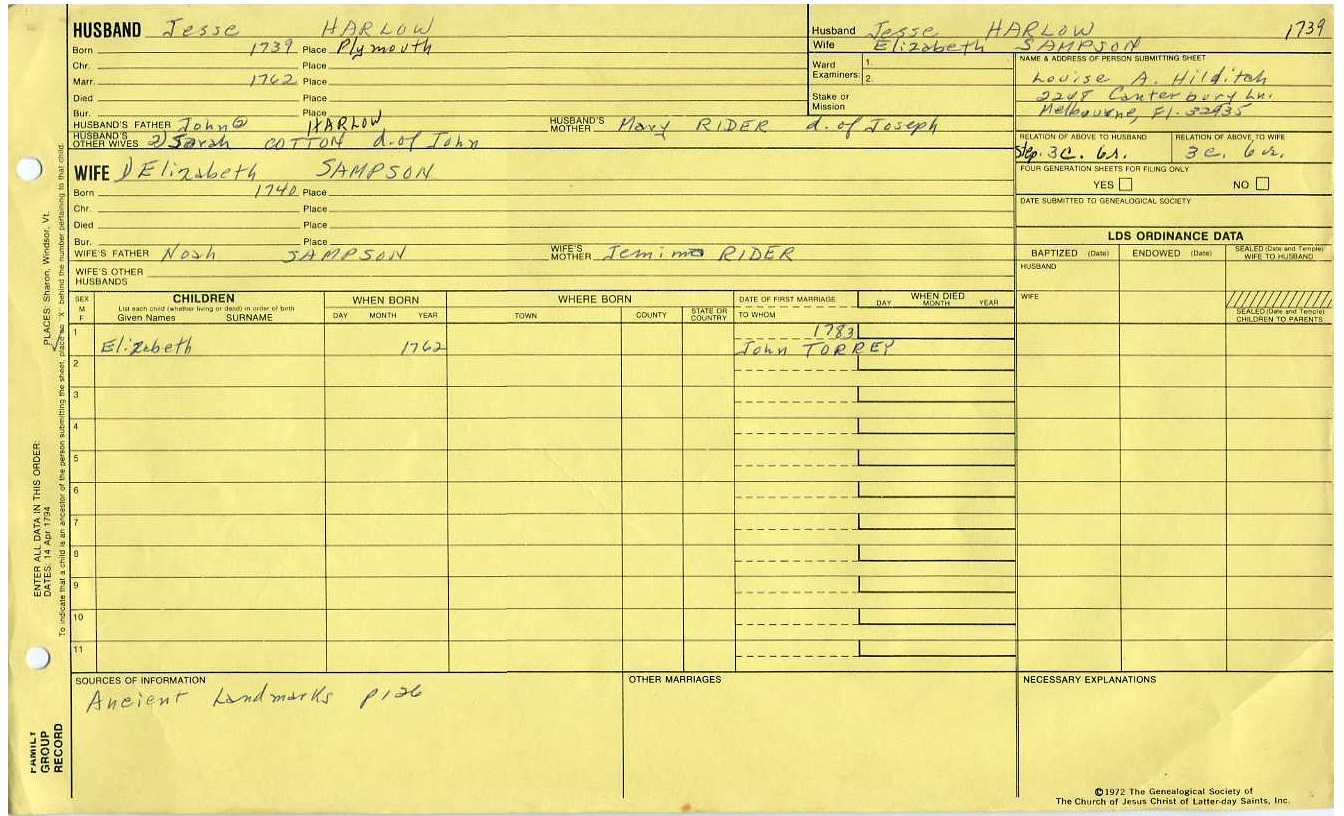 HUSBAND Jesse HARLOW
Born 1739 Place Plymouth
Chr. Place
Marr. 1762 Place
Died Place
Bur. Place
HUSBAND'S FATHER John② HARLOW HUSBAND'S MOTHER Mary RIDER d. of Joseph
HUSBAND'S OTHER WIVES 2) Sarah COTTON d. of John
WIFE 1) Elizabeth SAMPSON
Born 1740 Place
Chr. Place
Died Place
Bur. Place
WIFE'S FATHER Noah SAMPSON WIFE'S MOTHER Jemima RIDER
WIFE'S OTHER HUSBANDS
Husband Jesse HARLOW 1739
Wife Elizabeth SAMPSON
Ward 1.
Examiners: 2.
Stake or Mission
NAME & ADDRESS OF PERSON SUBMITTING SHEET
Louise A. Hilditch
2248 Canterbury Ln.
Melbourne, Fl. 32935
RELATION OF ABOVE TO HUSBAND RELATION OF ABOVE TO WIFE
Step. 3C. 6r. 3c. 6r.
FOUR GENERATION SHEETS FOR FILING ONLY
YES NO
DATE SUBMITTED TO GENEALOGICAL SOCIETY
LDS ORDINANCE DATA
BAPTIZED (Date) ENDOWED (Date) SEALED (Date and Temple) WIFE TO HUSBAND
HUSBAND
WIFE
SEALED (Date and Temple) CHILDREN TO PARENTS
SEX M F
CHILDREN
List each child (whether living or dead) in order of birth
Given Names SURNAME
WHEN BORN
DAY MONTH YEAR
WHERE BORN
TOWN COUNTY STATE OR COUNTRY
DATE OF FIRST MARRIAGE
TO WHOM
WHEN DIED
DAY MONTH YEAR
1 1783
Elizabeth 1762 John TORREY
2
3
4
5
6
7
8
9
10
11
SOURCES OF INFORMATION
Ancient Landmarks p126
OTHER MARRIAGES
NECESSARY EXPLANATIONS
©1972 The Genealogical Society of
The Church of Jesus Christ of Latter-day Saints, Inc.
ENTER ALL DATA IN THIS ORDER:
DATES: 14 Apr 1794
PLACES: Sharon, Windsor, Vt.
To indicate that a child is an ancestor of the person submitting the sheet, place an "X" behind the number pertaining to that child.
FAMILY GROUP RECORD